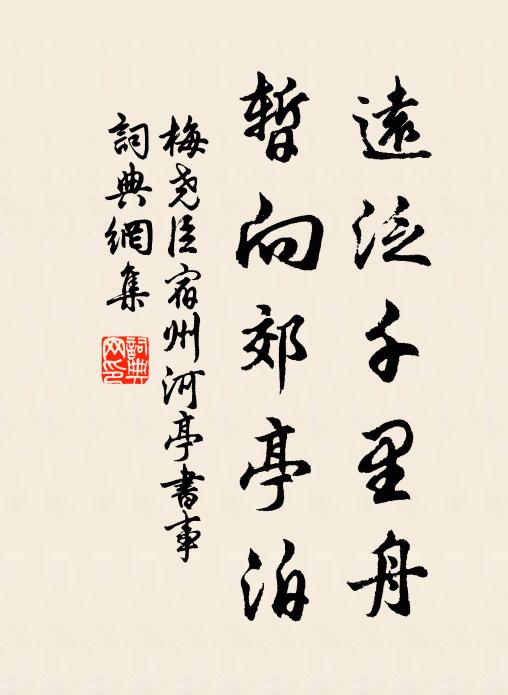 遠泛千里舟
暫向郊亭泊
梅尧臣宿州河亭書事
詞典網集
詞典
网印